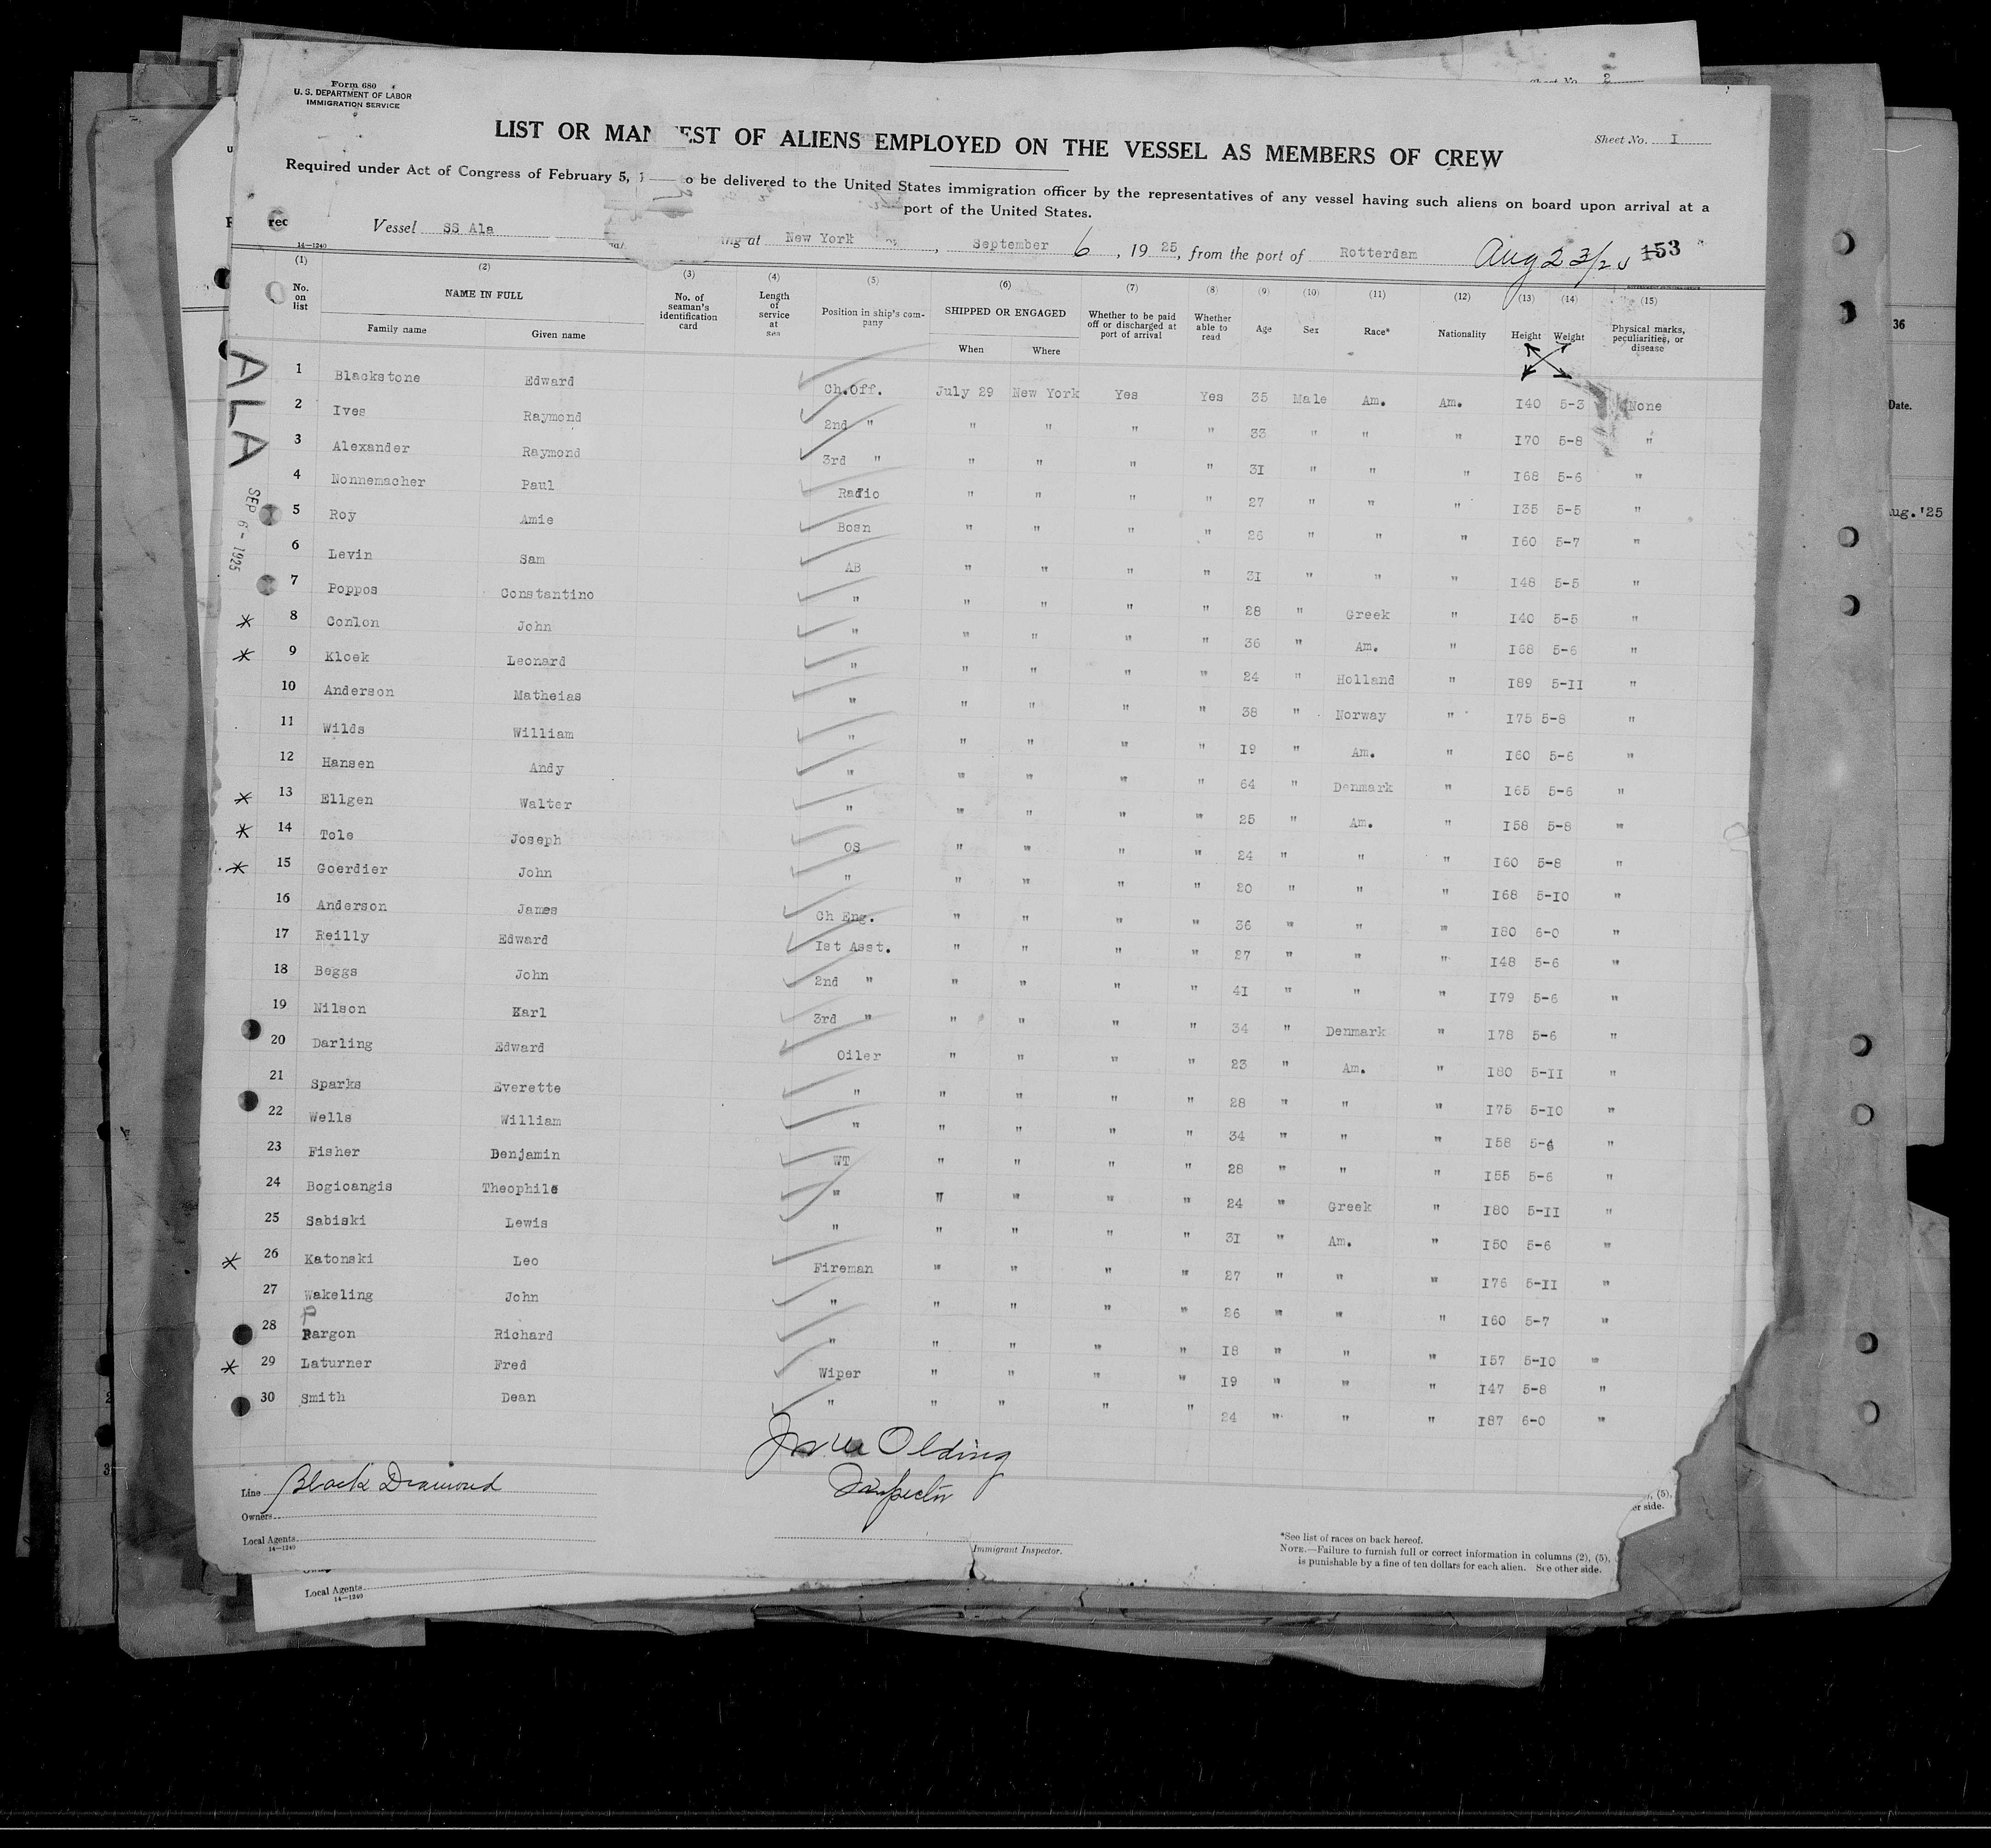 Form 680
U. S. DEPARTMENT OF LABOR
IMMIGRATION SERVICE
Sheet No. 2
LIST OR MAN EST OF ALIENS EMPLOYED ON THE VESSEL AS MEMBERS OF CREW
Sheet No. I
Required under Act of Congress of February 5, o be delivered to the United States immigration officer by the representatives of any vessel having such aliens on board upon arrival at a
port of the United States.
rec
Vessel SS Ala ing at New York, September 6, 19 25, from the port of Rotterdam Aug 23/25 153
14—1240
(1) (2) (3) (4) (5) (6) (7) (8) (9) (10) (11) (12) (13) (14) (15)
No. on list NAME IN FULL Family name Given name No. of seaman's identification card Length of service at sea Position in ship's company SHIPPED OR ENGAGED When Where Whether to be paid off or discharged at port of arrival Whether able to read Age Sex Race* Nationality Height Weight Physical marks, peculiarities, or disease
ALA
SEP 6 - 1925
1 Blackstone Edward Ch.Off. July 29 New York Yes Yes 35 Male Am. Am. I40 5-3 None
2 Ives Raymond 2nd " " " " " 33 " " " I70 5-8 "
3 Alexander Raymond 3rd " " " " " 3I " " " I68 5-6 "
4 Nonnemacher Paul Radio " " " " 27 " " " I35 5-5 "
5 Roy Amie Bosn " " " " 26 " " " I60 5-7 "
6 Levin Sam AB " " " " 3I " " " I48 5-5 "
7 Poppos Constantino " " " " " 28 " Greek " I40 5-5 "
8 Conlon John " " " " " 36 " Am. " I68 5-6 "
9 Kloek Leonard " " " " " 24 " Holland " I89 5-II "
10 Anderson Matheias " " " " " 38 " Norway " I75 5-8 "
11 Wilds William " " " " " I9 " Am. " I60 5-6 "
12 Hansen Andy " " " " " 64 " Denmark " I65 5-6 "
13 Ellgen Walter " " " " " 25 " Am. " I58 5-8 "
14 Tole Joseph OS " " " " 24 " " " I60 5-8 "
15 Goerdier John " " " " " 20 " " " I68 5-I0 "
16 Anderson James Ch Eng. " " " " 36 " " " I80 6-0 "
17 Reilly Edward Ist Asst. " " " " 27 " " " I48 5-6 "
18 Beggs John 2nd " " " " " 4I " " " I79 5-6 "
19 Nilson Karl 3rd " " " " " 34 " Denmark " I78 5-6 "
20 Darling Edward Oiler " " " " 23 " Am. " I80 5-II "
21 Sparks Everette " " " " " 28 " " " I75 5-I0 "
22 Wells William " " " " " 34 " " " I58 5-6 "
23 Fisher Benjamin WT " " " " 28 " " " I55 5-6 "
24 Bogioangis Theophile " " " " " 24 " Greek " I80 5-II "
25 Sabiski Lewis " " " " " 3I " Am. " I50 5-6 "
26 Katonski Leo Fireman " " " " 27 " " " I76 5-II "
27 Wakeling John " " " " " 26 " " " I60 5-7 "
28 Pargon Richard " " " " " I8 " " " I57 5-I0 "
29 Laturner Fred Wiper " " " " I9 " " " I47 5-8 "
30 Smith Dean " " " " " 24 " " " I87 6-0 "
Olding
Inspector
Line Black Diamond
Owners
Local Agents
14—1240
Immigrant Inspector.
*See list of races on back hereof.
NOTE.—Failure to furnish full or correct information in columns (2), (5),
is punishable by a fine of ten dollars for each alien. See other side.
, (5),
er side.
Local Agents
14—1240
36
Date.
ug. '25